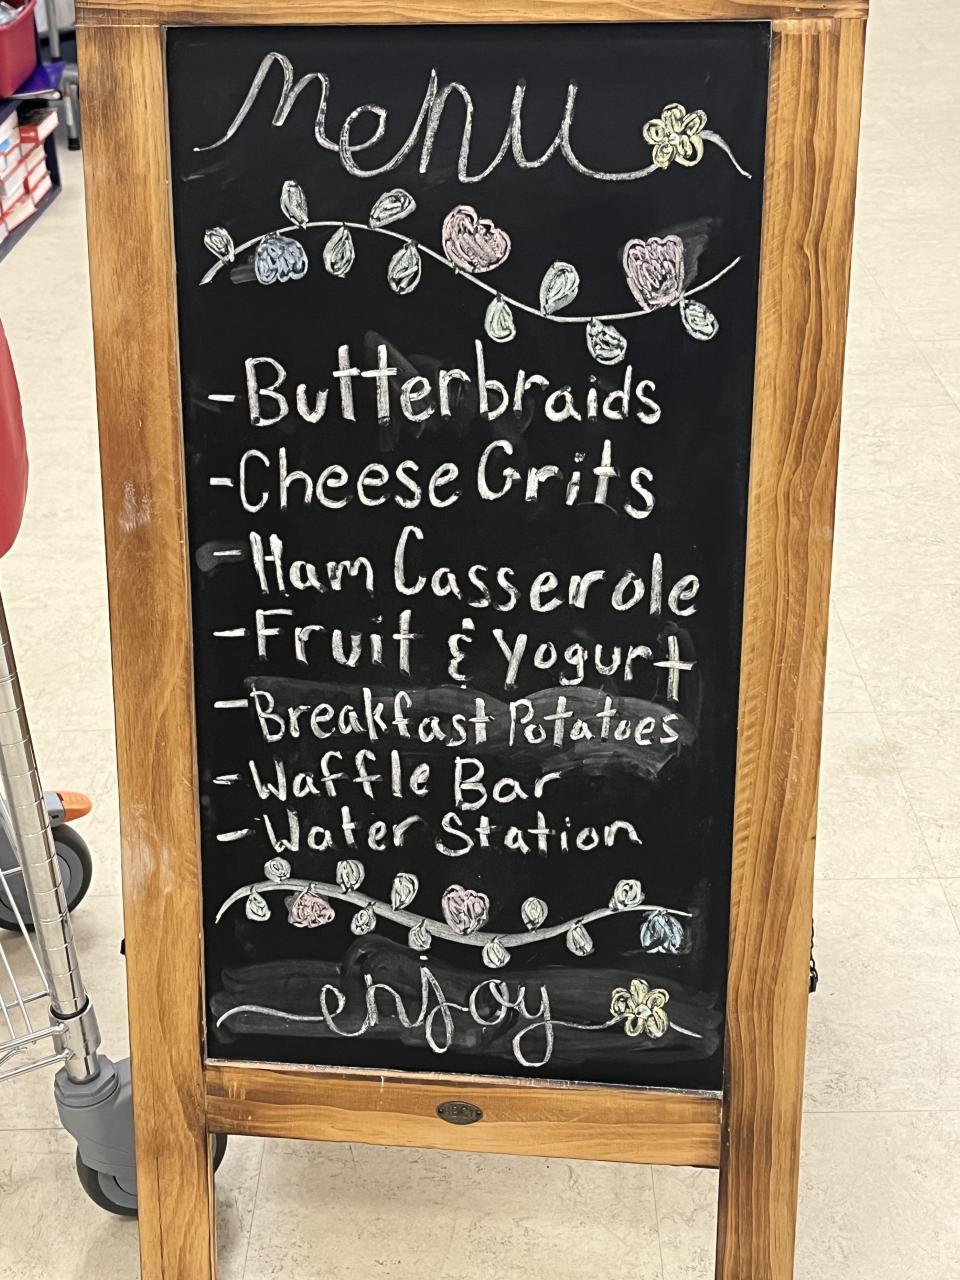 Menu
-Butterbraids
-Cheese Grits
-Ham Casserole
-Fruit & Yogurt
-Breakfast Potatoes
-Waffle Bar
-Water Station
enjoy